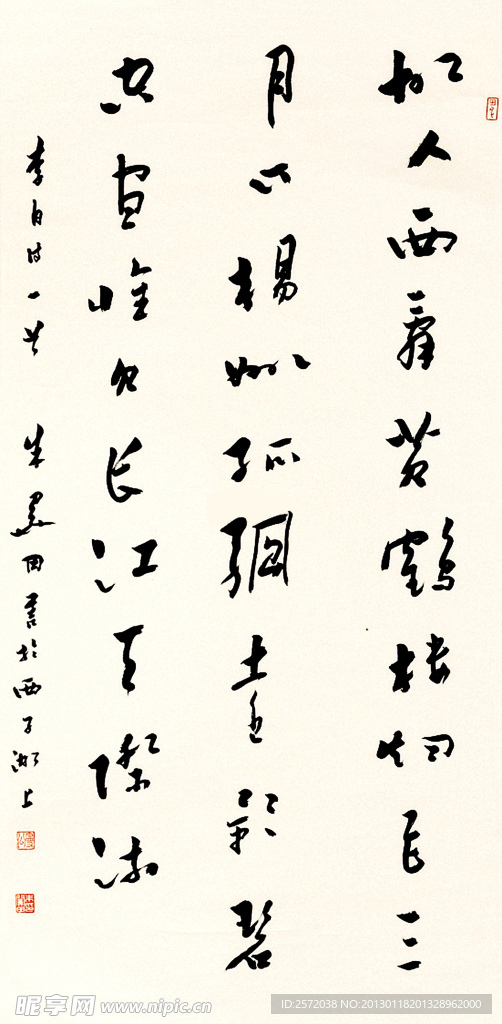 故人西辭黃鶴樓烟花三
月下揚州孤帆遠影碧
空盡唯見長江天際流
李白詩一首 朱關田書於西子湖上
昵享网 www.nipic.cn
ID:2572038 NO:20130118201328962000